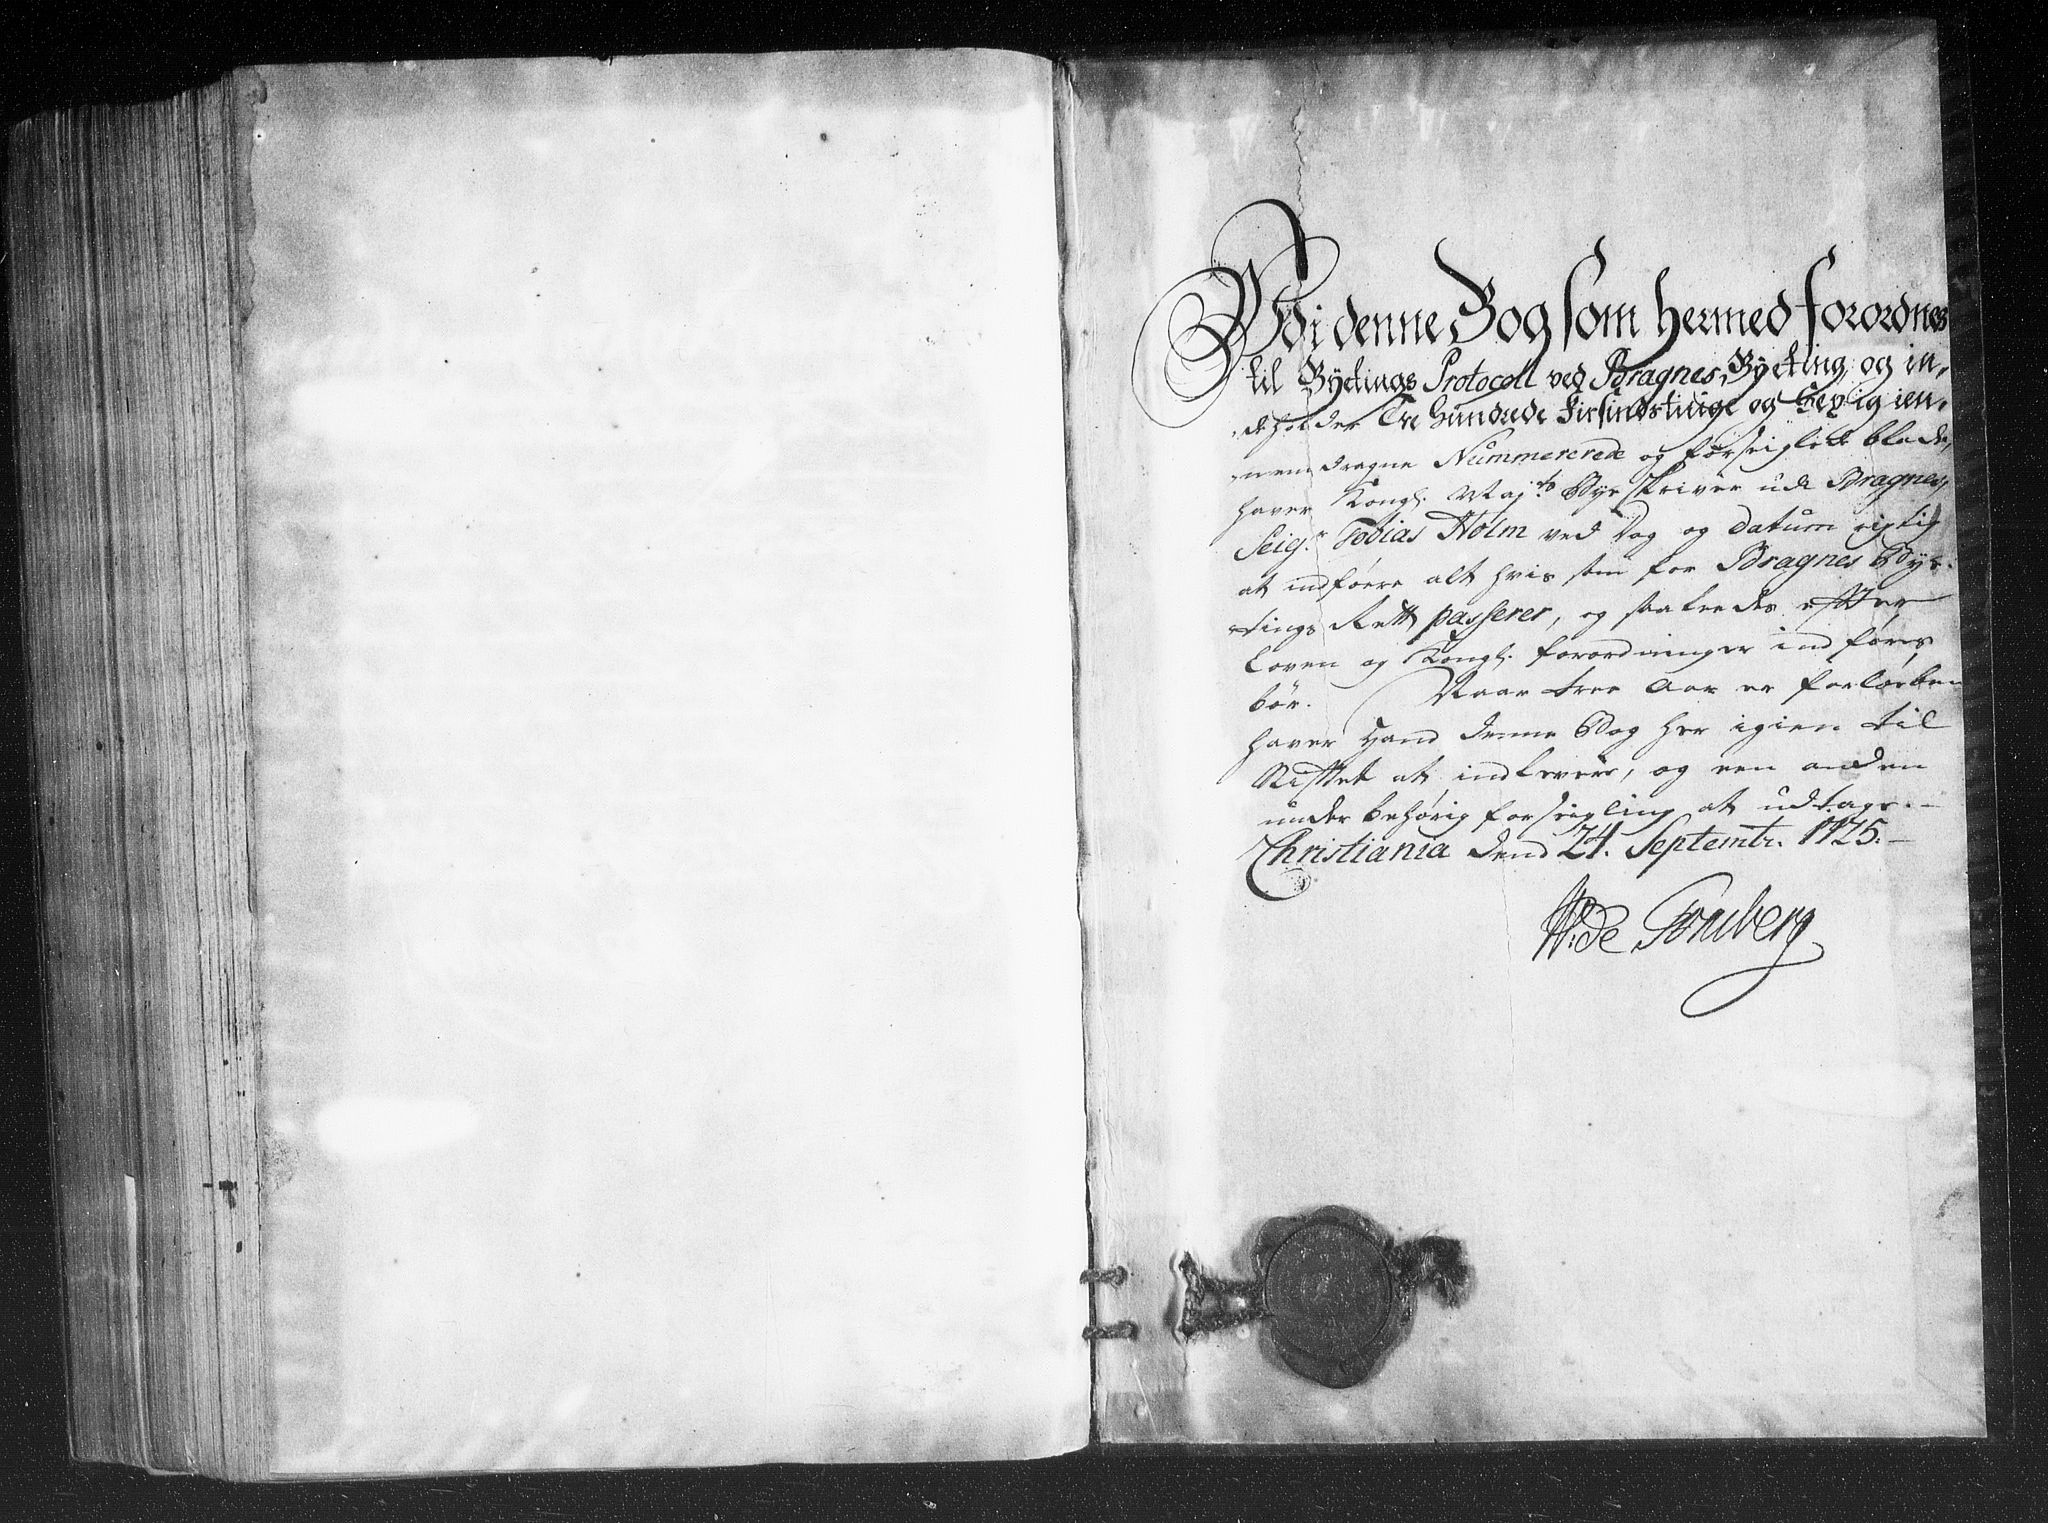 Udi denne Bog som hermed forordnes
til Byetings Protocoll ved Bragnes Byeting, og in-
deholder Tre Hundrede Firsindstiuge og Sex igien-
nemdragne Nummererede og forseiglede blade,
haver Kongl. Maj.ts Bye Skriver udi Bragnes
Seig.r Tobias Holm ved Dag og Datum rigtig
at indføere alt hvis som for Bragnes Bye-
tings Rett passerer, og saaledes efter
Loven og Kongl. forordninger indføres
bør. Naar tree Aar er forløeben
haver Hand denne Bog her igien til
Stiftet at indlevere, og een anden
under behørig forseigling at udtage.-
Christiania dend 24. Septembr. 1725.-
W: de Tonsberg